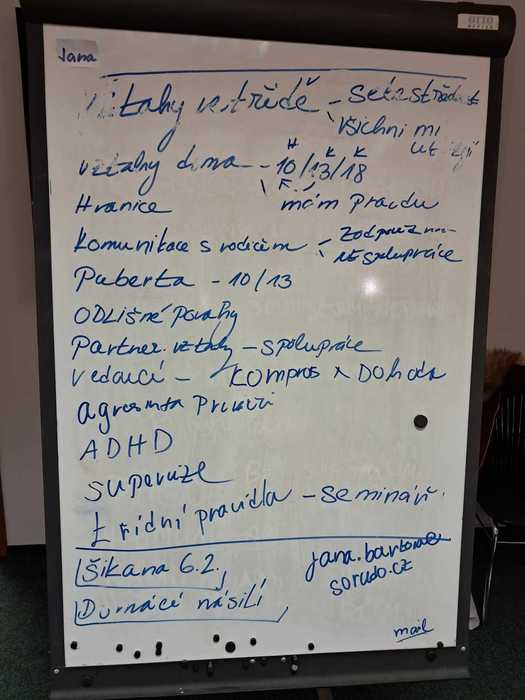 Jana
Vztahy ve třídě - Sebestřednost
všichni mi
ubližují
vztahy doma - 10/13/18
H K K
F.
Hranice mám pravdu
Komunikace s rodičem -
nespolupráce
Puberta - 10/13
ODLIŠNÉ POVAHY
Partner. vztahy - spolupráce
vedoucí - kompros x DOHODA
agresivita
ADHD
superuze
třídní pravidla - seminář.
šikana 6.2.
Domácí násilí
jana.bartova@
sorudo.cz
mail